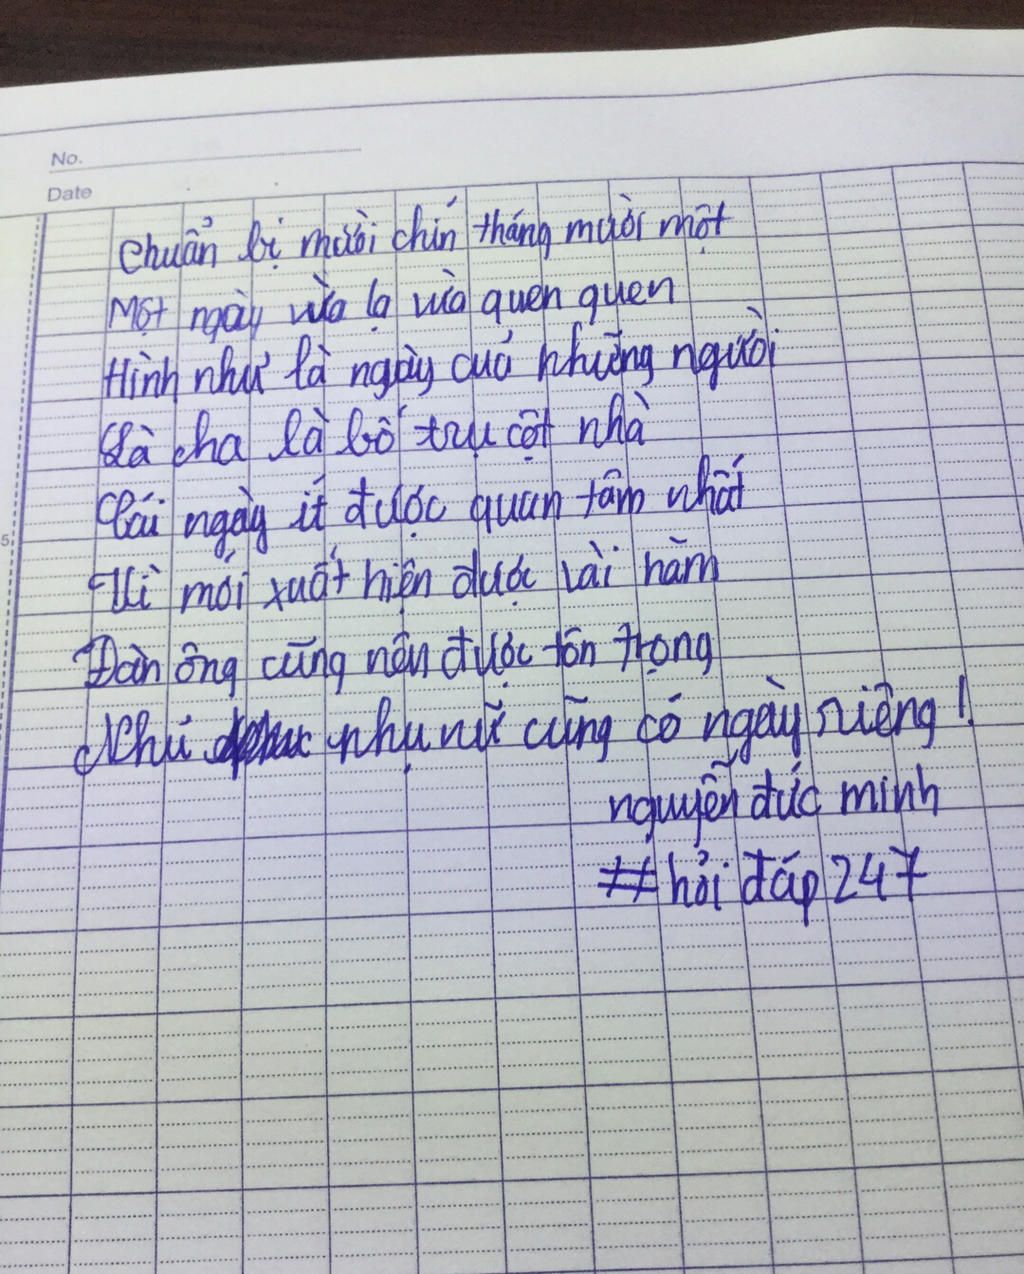 No.
Date
Chuẩn bị mười chín tháng mười một
Một ngày vừa lạ vừa quen quen
Hình như là ngày của những người
Là cha là bố trụ cột nhà
Cái ngày ít được quan tâm nhất
Vì mới xuất hiện được vài năm
Đàn ông cũng nên được tôn trọng
Như phụ nữ cũng có ngày riêng!
nguyễn đức minh
## hỏi đáp 247
5